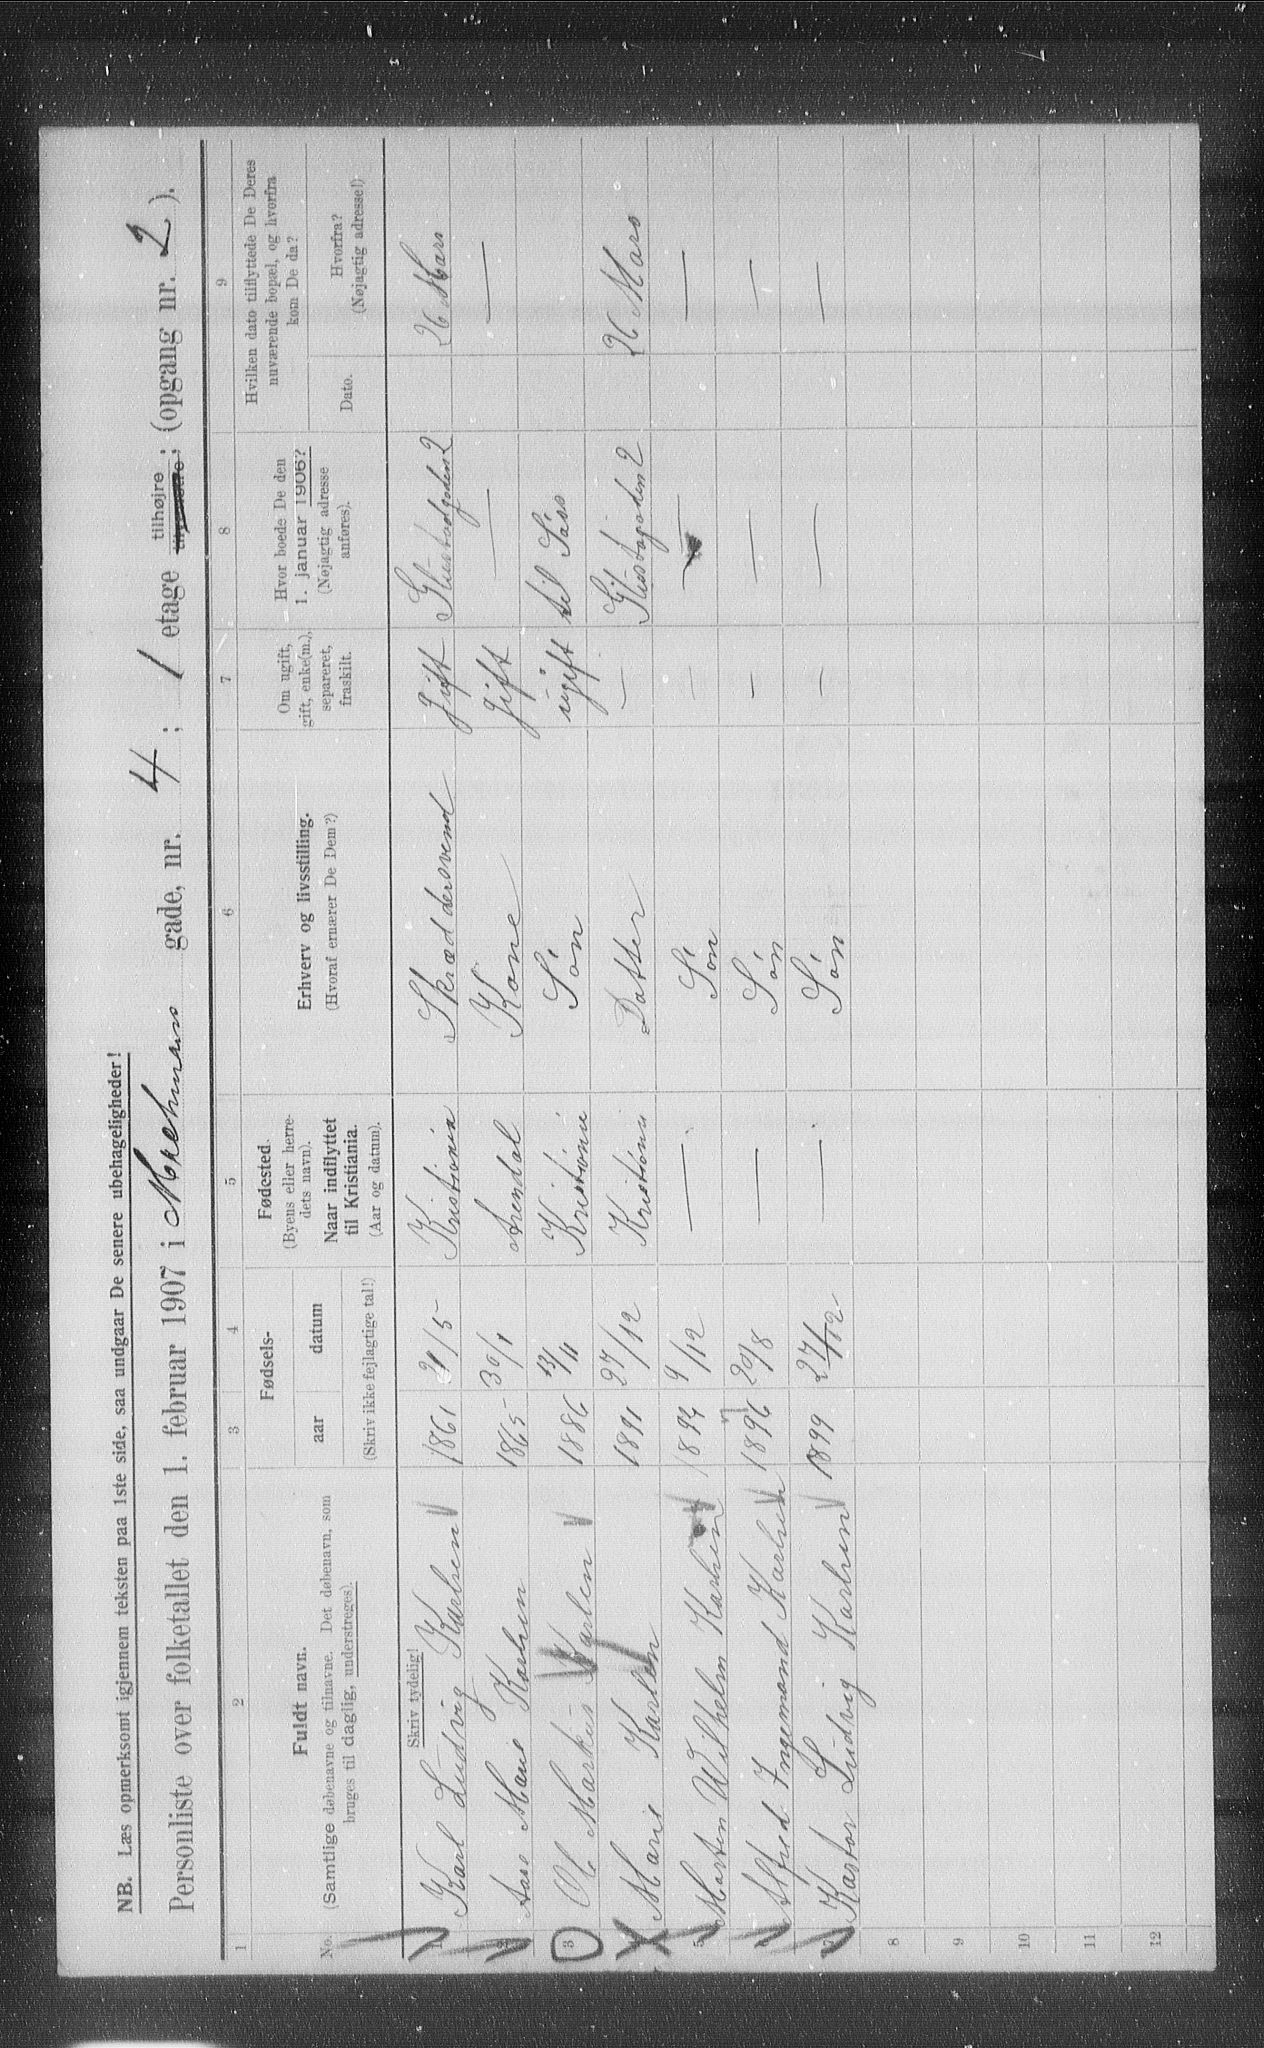 NB. Læs opmerksomt igjennem teksten paa 1ste side, saa undgaar De senere ubehageligheder!
Personliste over folketallet den 1. februar 1907 i gade, nr. 4 ; 1 etage tilhøjre ; (opgang nr. 2 ).
1 2 3 4 5 6 7 8 9
No.
Fuldt navn.
(Samtlige døbenavne og tilnavne. Det døbenavn, som
bruges til daglig, understreges).
Fødsels-
aar datum
(Skriv ikke fejlagtige tal!)
Fødested.
(Byens eller herre-
dets navn).
Naar indflyttet
til Kristiania.
(Aar og datum).
Erhverv og livsstilling.
(Hvoraf ernærer De Dem?)
Om ugift,
gift, enke(m.),
separeret,
fraskilt.
Hvor boede De den
1. januar 1906?
(Nøjagtig adresse
anføres).
Hvilken dato tilflyttede De Deres
nuværende bopæl, og hvorfra
kom De da?
Dato.
Hvorfra?
(Nøjagtig adresse!)
Skriv tydelig!
1 Karl Ludvig Karlsen 1861 21/5 Kristiania Skrædersvend gift 26 Mars
2 Marie Karlsen 1865 30/1 Arendal Kone gift —
3 Ole Markus Karlsen 1886 13/11 Kristiania Sön ugift til Søss
4 Marie Karlsen 1891 27/12 Kristiania Datter — 26 Mars
5 Morten Wilhelm Karlsen 9/12 — Sön — — —
6 Alfred Ingemand Karlsen 1896 20/8 — Sön — — —
7 Kastor Ludvig Karlsen 1899 27/12 — Sön — — —
8
9
10
11
12